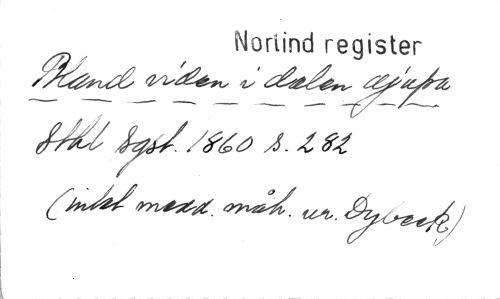 Norlind register
Bland viden i dalen djupa
Sthl Sgst. 1860 s. 282
(inkl medd. måh. ur. Dybeck)